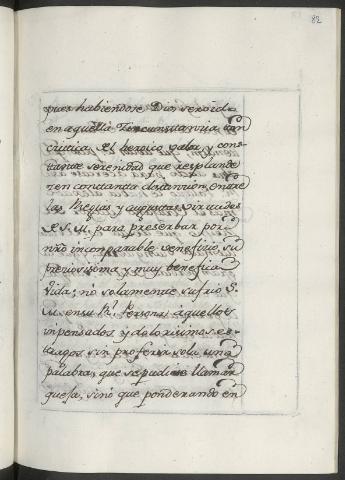 82
pues habiendose Dios servido
en aquella Circunstancia tan
critica, el heroico valor, y cons
tante serenidad que resplande
zen con tanta distincion entre
las Regias, y augustas virtudes
de S. M. para preserbar por
nro incomparable beneficio, su
preciosissima y muy benefica
Vida; no solamente sufrio S.
M. en su Rl. Persona aquellos
inpensados, y dolorisimos es-
tragos, sin proferir sola una
palabra, que se pudiese llamar
quexa, sino que ponderando en